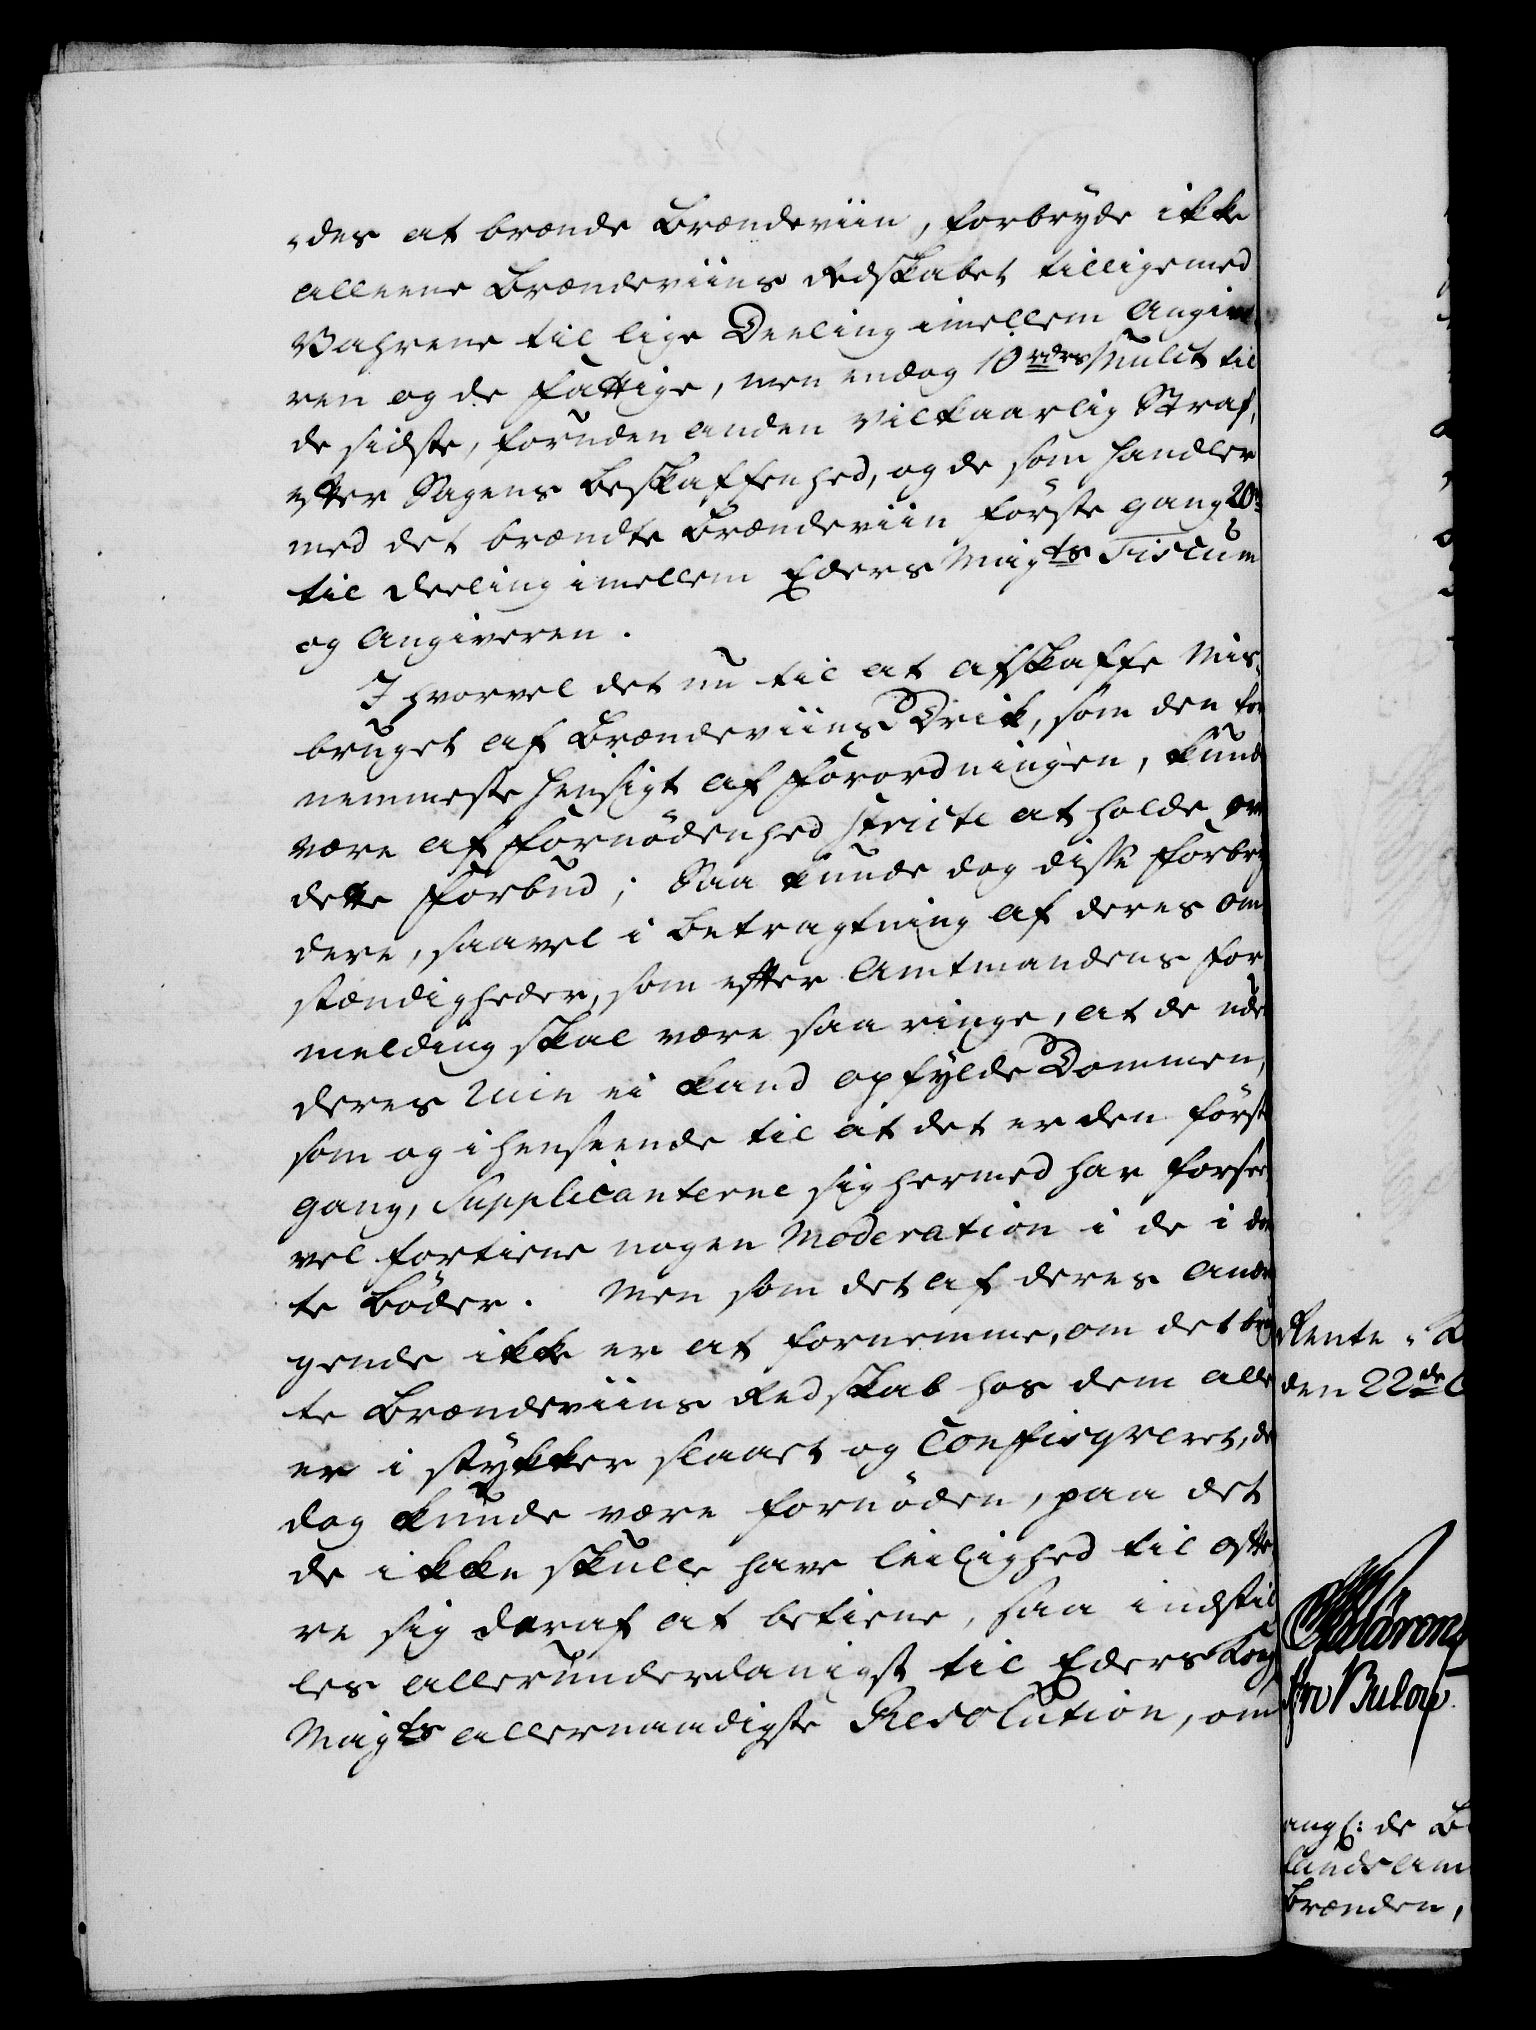 -des at brænde Brændeviin, forbryde ikke
alleene Brændeviins Redskabet tilligemed
Vahrene til lige Deeling imellem Angive
ren og de Fattige, men endog 10 rdrs Mulct til
de sidste, foruden anden vilkaarlig Straf,
efter Sagens Beskaffenhed, og de som handler
med det brændte Brændeviin første gang 20
til deeling imellem Eders Mayts Fiscum
og Angiveren.
Ihvorvel det nu til at afskaffe Mis-
bruget af Brændeviins Drik, som den for
nemmeste Hensigt af Forordningen, kunde
være af Fornødenhed stricte at holde over
dette Forbud; Saa kunde dog disse Forbry
dere, saavel i Betragtning af deres Om
stændigheder, som efter Amtmandens For
melding skal være saa ringe, at de uden
deres Ruin ei kand opfylde Dommen,
som og i henseende til at det er den første
gang, Supplicanterne sig hermed har forseet
vel fortiene nogen Moderation i de i døm
te Bøder. Men som det af deres Andra
gende ikke er at fornemme, om det brug
te Brændeviins Redskab hos dem alle
er i stykker slaaet og Confisqveret, det
dog kunde være fornøden, paa det
de ikke skulle have Leilighed til ofte
re sig deraf at betiene, saa indstil
les allerunderdanigst til Eders Kongl
Mayts allernaadigste Resolution, om
Rente-K
den 22de
von Bulow
ang: de B
lands Am
brænden,